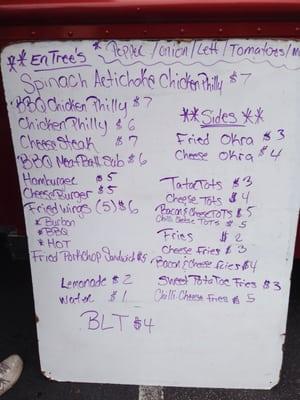 **EnTree's * Pepper/Onion/Lett/Tomatoes/
Spinach Artichoke Chicken Philly $7
BBQ Chicken Philly $7
Chicken Philly $6
Cheese Steak $7
BBQ Meat Ball Sub $6
Hamburger $5
Cheese Burger $5
Fried wings (5) $6
* Burbon
* BBQ
* HOT
Fried PorkChop Sandwich $5
Lemonade $2
Water $1
BLT $4
**Sides**
Fried Okra $3
Cheese Okra $4
TatorTots $3
Cheese Tots $4
Bacon & Cheese TOTS $5
Chili Cheese TOTS $5
Fries $2
Cheese Fries $3
Bacon & Cheese fries $4
Sweet PotaToe Fries $3
Chilli Cheese Fries $5